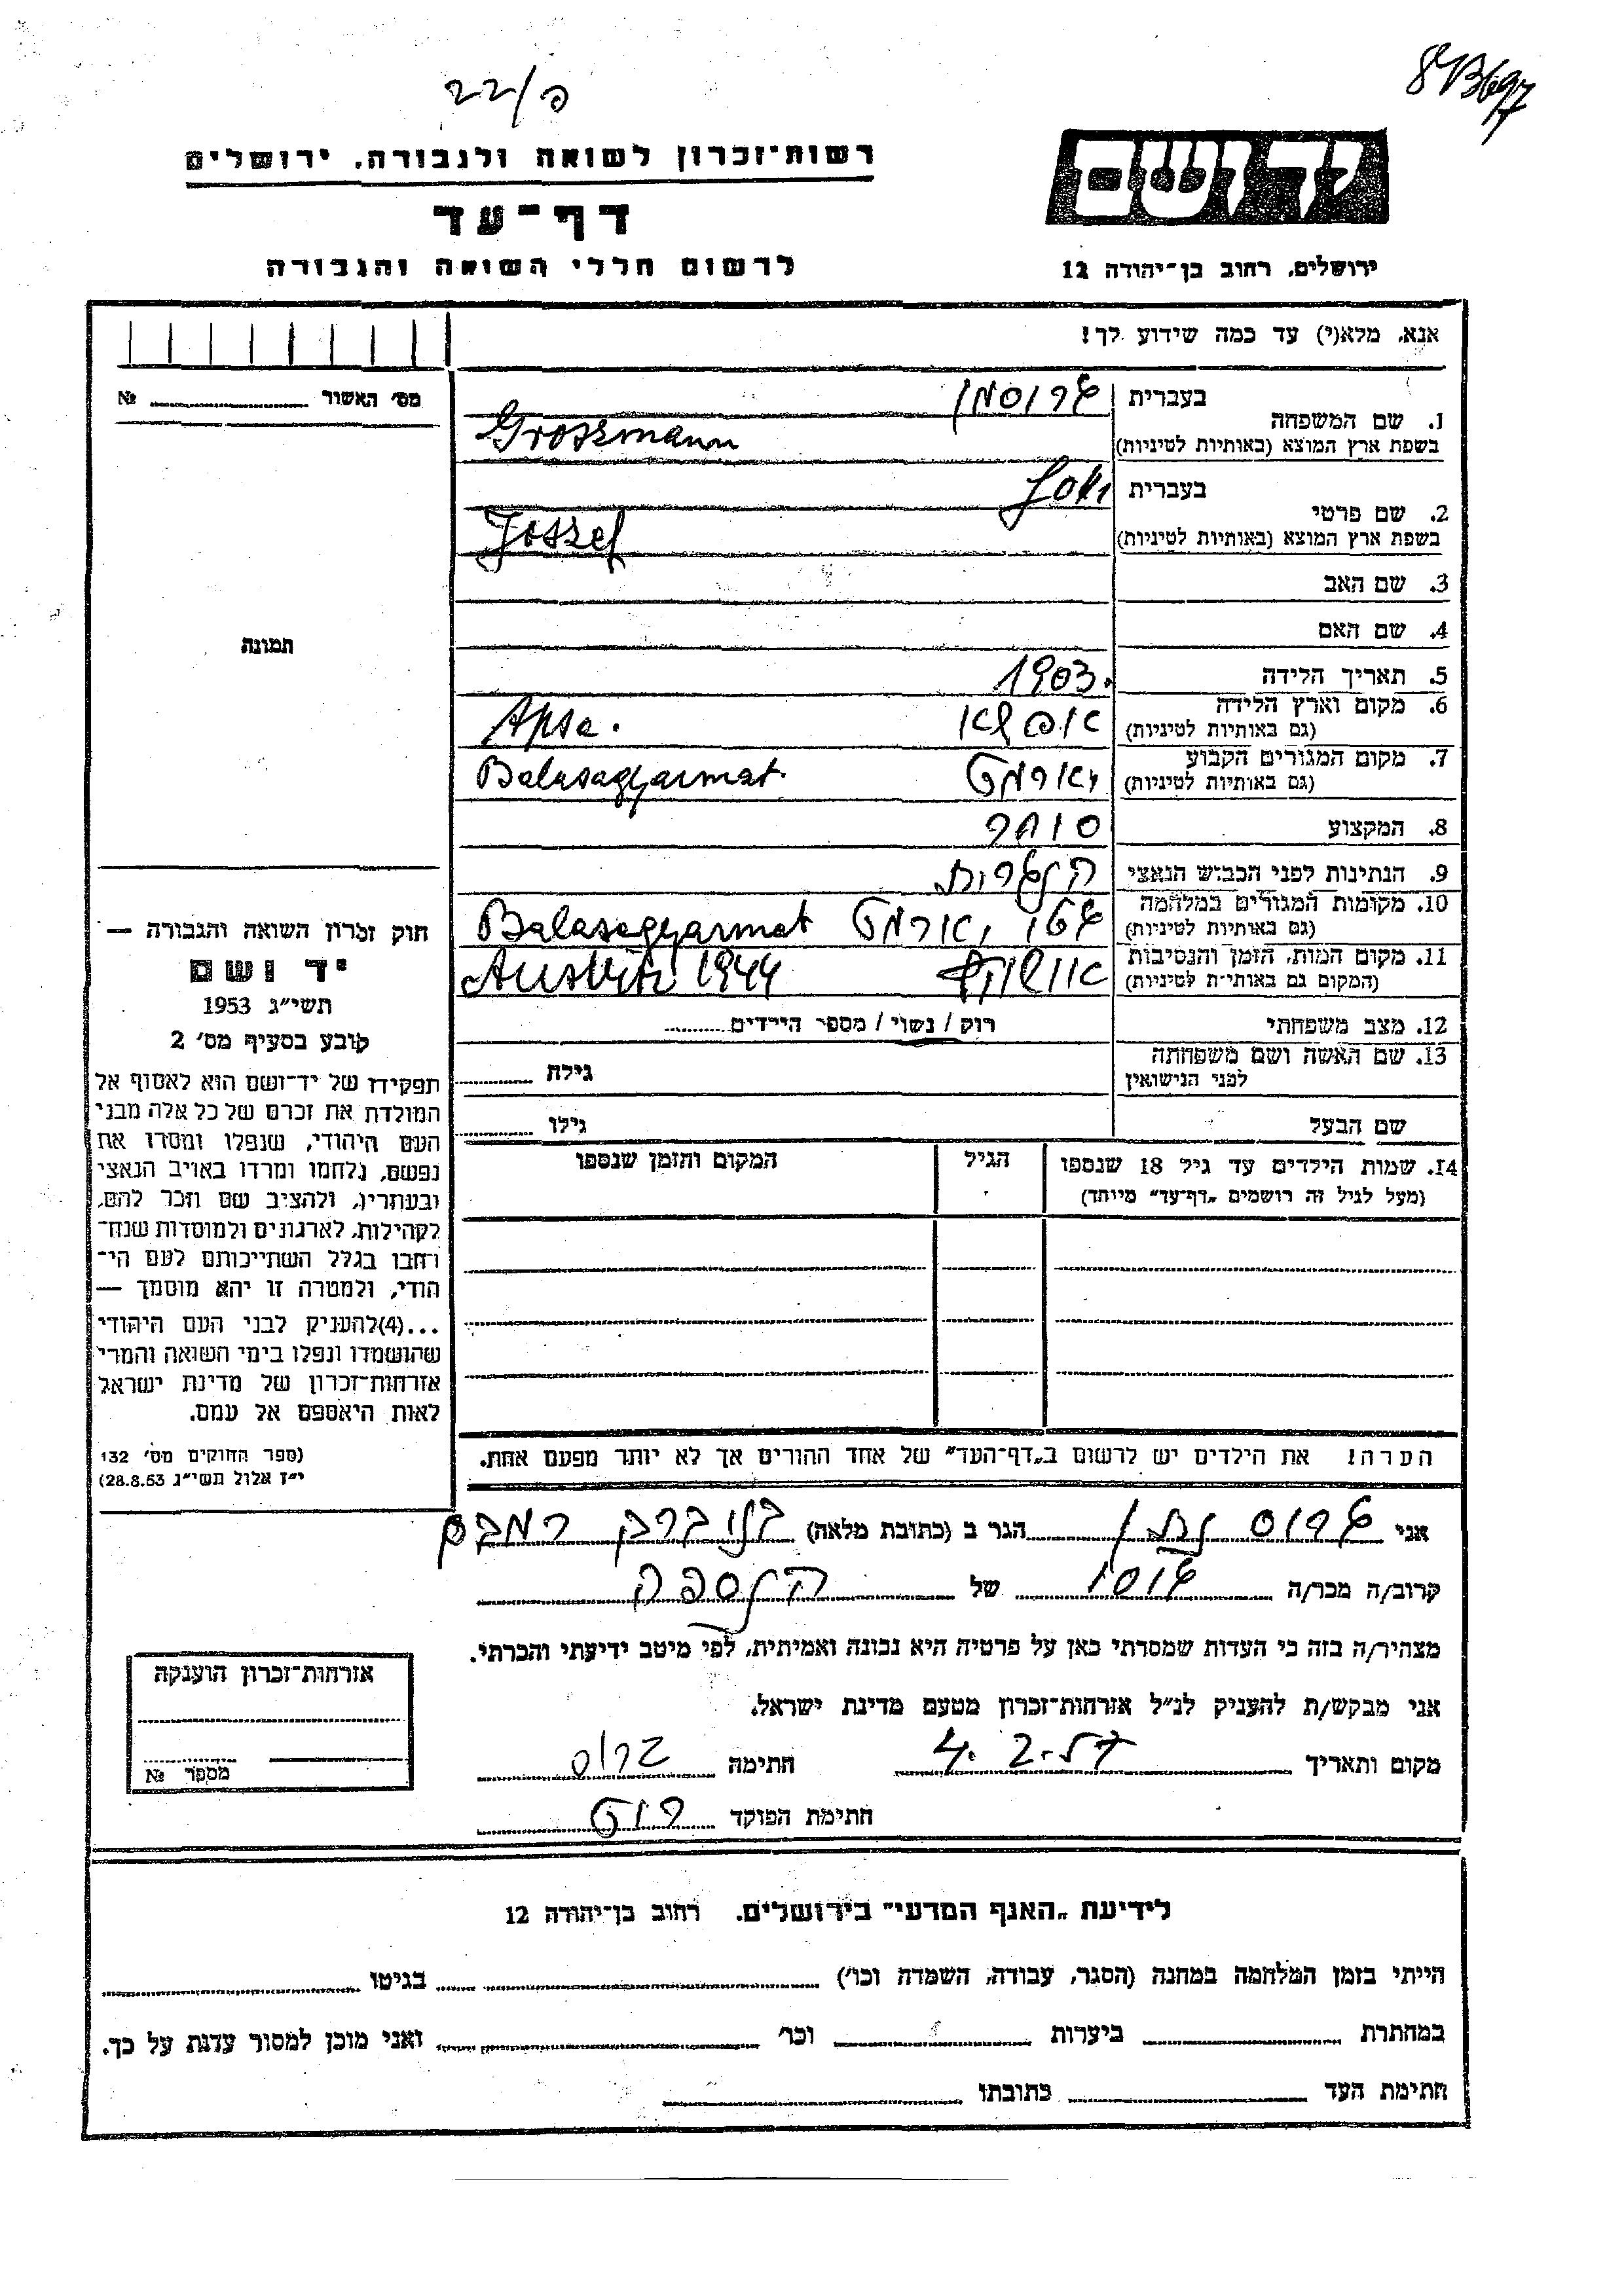 22/פ
8 VB697
רשות־זכרון לשואה ולגבורה, ירושלים
יד ושם
דף־עד
לרשום חללי השואה והגבורה
ירושלים, רחוב בן־יהודה 12
אנא, מלא(י) עד כמה שידוע לך!
מס׳ האשור № 
1. שם המשפחה
בעברית גרוסמן
בשפת ארץ המוצא (באותיות לטיניות) Groszmann
2. שם פרטי
בעברית יוסף
בשפת ארץ המוצא (באותיות לטיניות) Joszef
3. שם האב
4. שם האם
תמונה
5. תאריך הלידה 1903.
6. מקום וארץ הלידה
(גם באותיות לטיניות) Apsa.
7. מקום המגורים הקבוע
(גם באותיות לטיניות) יארמט Balasagyarmat
8. המקצוע סוחר
9. הנתינות לפני הכבוש הנאצי הונגרית
10. מקומות המגורים במלחמה
(גם באותיות לטיניות) גטו יארמט Balasagyarmat
11. מקום המות, הזמן והנסיבות
(המקום גם באותיות לטיניות) Ausvitz 1944
12. מצב משפחתי רווק / נשוי / מספר הילדים
13. שם האשה ושם משפחתה
לפני הנישואין גילה
שם הבעל גילו
14. שמות הילדים עד גיל 18 שנספו הגיל המקום והזמן שנספו
(מעל לגיל זה רושמים „דף־עד״ מיוחד)
הערה! את הילדים יש לרשום ב„דף־העד״ של אחד ההורים אך לא יותר מפעם אחת.
חוק זכרון השואה והגבורה —
יד ושם
תשי״ג 1953
קובע בסעיף מס׳ 2
תפקידו של יד־ושם הוא לאסוף אל
המולדת את זכרם של כל אלה מבני
העם היהודי, שנפלו ומסרו את
נפשם, נלחמו ומרדו באויב הנאצי
ובעוזריו, ולהציב שם וזכר להם,
לקהילות, לארגונים ולמוסדות שנח־
רבו בגלל השתייכותם לעם הי־
הודי, ולמטרה זו יהא מוסמך —
...(4)להעניק לבני העם היהודי
שהושמדו ונפלו בימי השואה והמרי
אזרחות־זכרון של מדינת ישראל
לאות היאספם אל עמם.
(ספר החוקים מס׳ 132
י״ז אלול תשי״ג 28.8.53)
אני גרוס נתן הגר ב (כתובת מלאה) בני ברק רמבם
קרוב/ה מכר/ה גיסו של הנספה
מצהיר/ה בזה כי העדות שמסרתי כאן על פרטיה היא נכונה ואמיתית, לפי מיטב ידיעתי והכרתי.
אני מבקש/ת להעניק לנ״ל אזרחות־זכרון מטעם מדינת ישראל.
מקום ותאריך 4.2.57 חתימה גרוס
חתימת הפוקד
אזרחות־זכרון הוענקה
מספר №
לידיעת „האגף המדעי״ בירושלים. רחוב בן־יהודה 12
הייתי בזמן המלחמה במחנה (הסגר, עבודה, השמדה וכו׳) בגיטו
במחתרת ביערות וכו׳ ואני מוכן למסור עדות על כך.
חתימת העד כתובתו